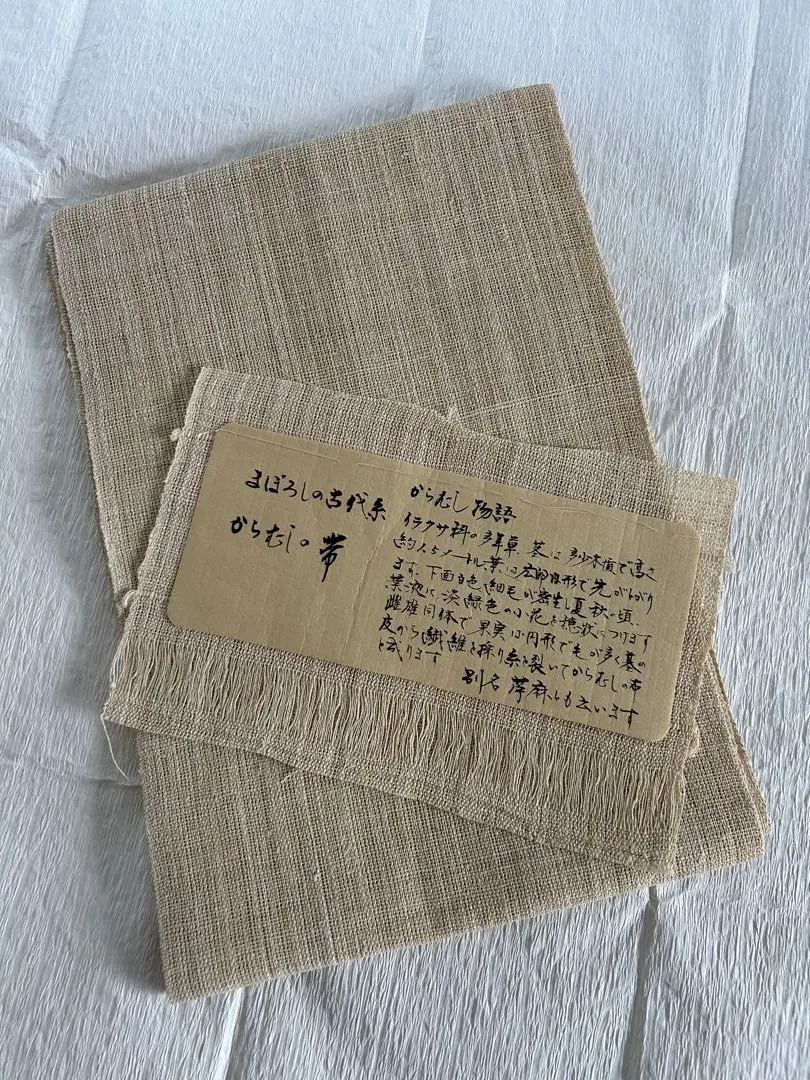 まぼろしの古代糸
からむしの帯
からむし物語
イラクサ科の多年草、茎は多少木質で高さ
約1.5メートル、葉は広卵円形で先がとがり
ます。下面白色く細毛が密生し夏秋の頃、
葉液に淡緑色の小花を穂状につけます
雌雄同体で果実は円形で毛が多く茎の
皮から繊維を採り糸を裂いてからむしの布
を織ります
別名 苧麻とも云います